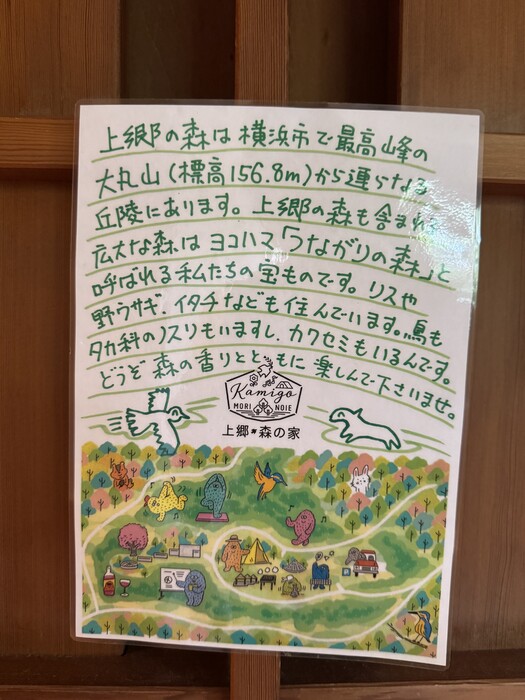 上郷の森は横浜市で最高峰の
大丸山(標高156.8m)から連らなる
丘陵にあります。上郷の森も含まれ
広大な森はヨコハマ「つながりの森」と
呼ばれる私たちの宝ものです。リスや
野ウサギ、イタチなども住んでいます。鳥も
タカ科のノスリもいますし、カワセミもいるんです。
どうぞ森の香りとともに楽しんで下さいませ。
Kamigo
MORI NOIE
上郷・森の家